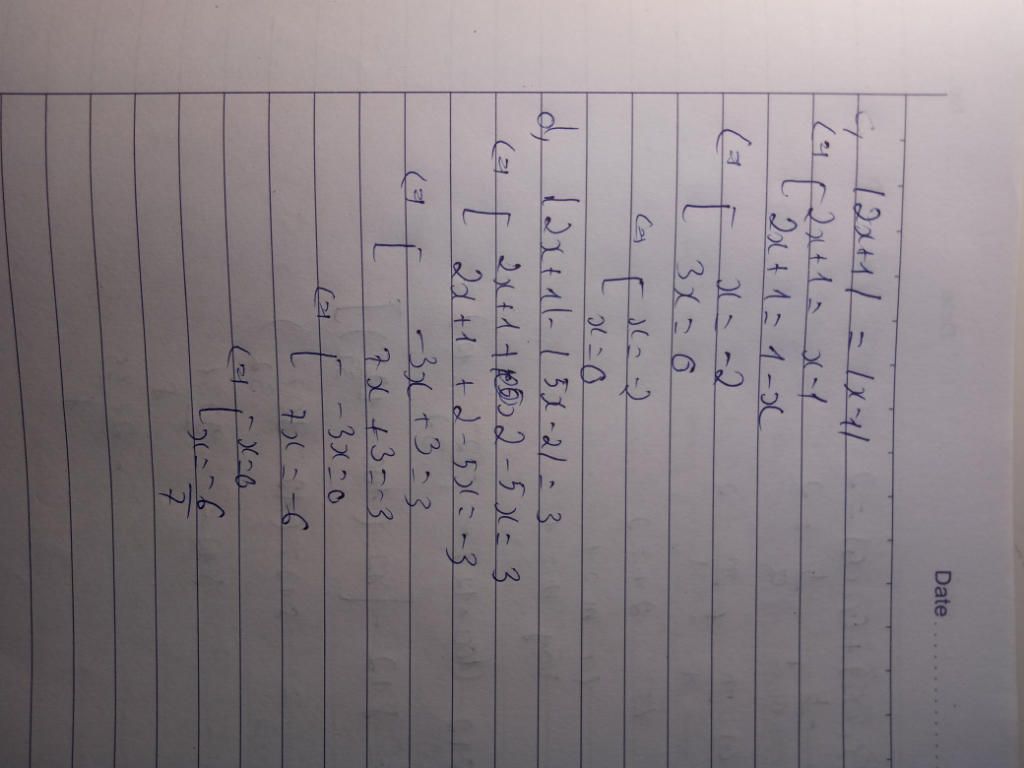 Date ..........
c, |2x+1| = |x-1|
(=) [ 2x+1 = x-1
2x+1 = 1-x
(=) [ x = -2
3x = 0
(=) [ x = -2
x = 0
d, |2x+1| - |5x-2| = 3
(=) [ 2x+1+2-5x = 3
2x+1+2-5x = -3
(=) [ -3x+3 = 3
7x+3 = -3
(=) [ -3x = 0
7x = -6
(=) [ -x = 0
x = -6/7